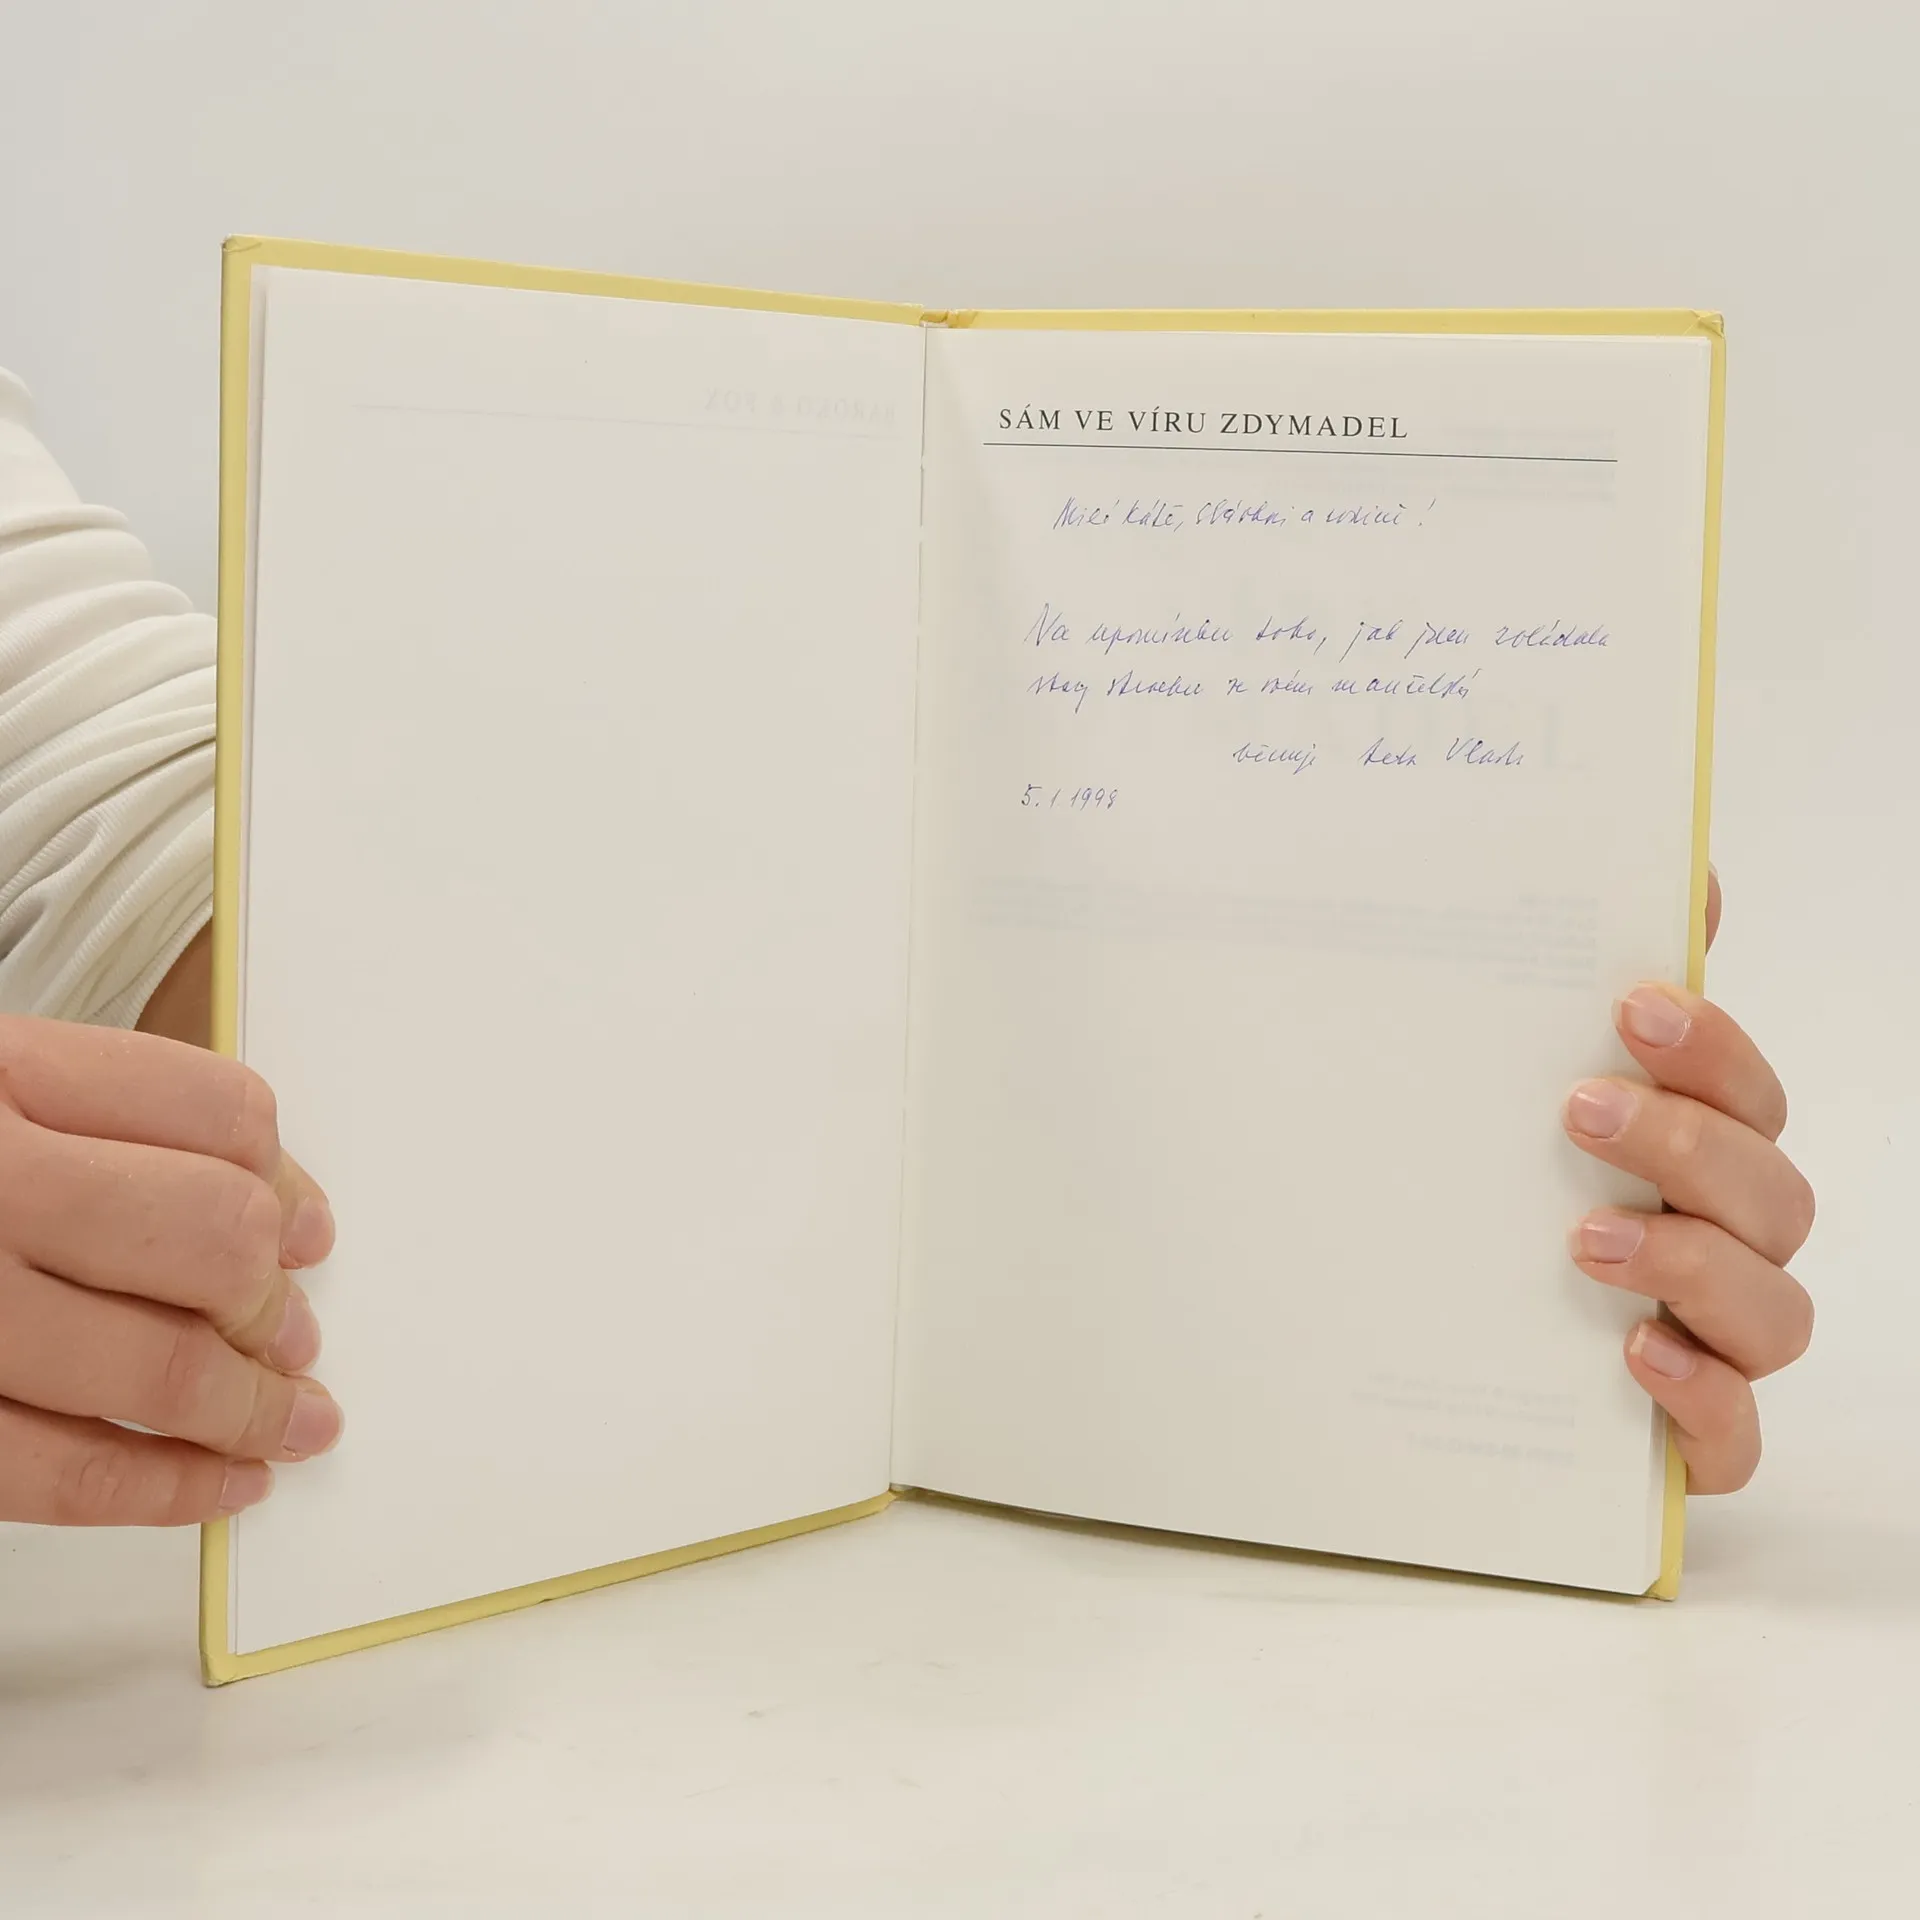 BAROKO & FOX
SÁM VE VÍRU ZDYMADEL
Milé Kátě, a rodině!
Na upomínku toho, jak jsem zvládala
stavy ve svém manželství
věnuje teta Vlasta
5. 1 1998